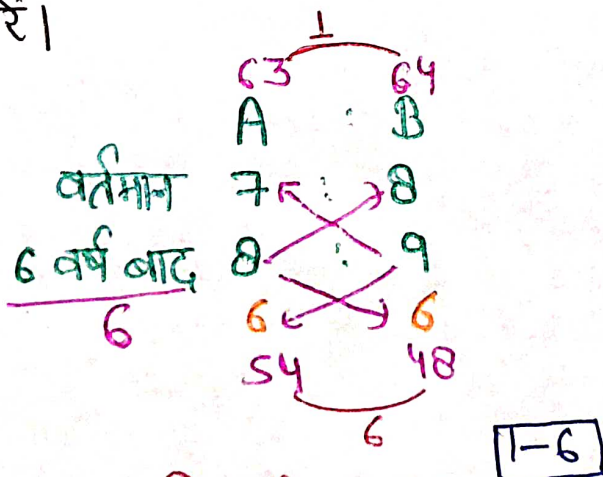 रें।
1
63 64
A : B
वर्तमान 7 : 8
6 वर्ष बाद 8 : 9
6 6 6
54 48
6
1-6